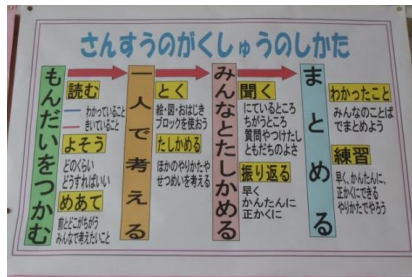 さんすうのがくしゅうのしかた
もんだいをつかむ
読む
わかっていること
きいていること
よそう
どのくらい
どうすればいい
めあて
前とどこがちがう
みんなで考えたいこと
一人で考える
とく
絵・図・おはじき
ブロックを使おう
たしかめる
ほかのやりかたや
せつめいを考える
みんなとたしかめる
聞く
にているところ
ちがうところ
質問やつけたし
ともだちのよさ
振り返る
早く
かんたんに
正かくに
まとめる
わかったこと
みんなのことば
でまとめよう
練習
早く、かんたんに、
正かくにできる
やりかたでやろう